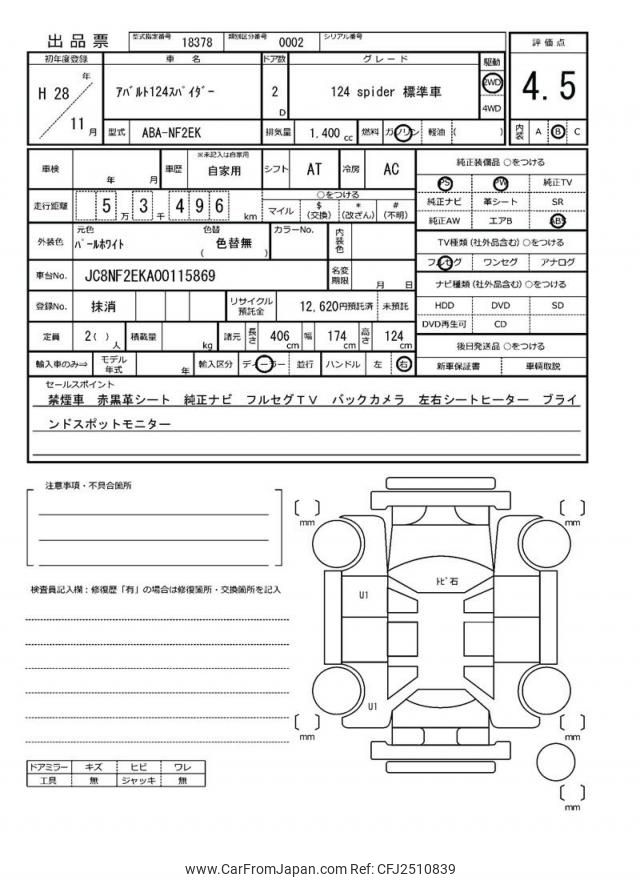 出品票 型式指定番号 18378 類別区分番号 0002 シリアル番号
初年度登録 車 名 ドア数 グレード 駆動 評価点
H 28 年 11 月
ｱﾊﾞﾙﾄ124ｽﾊﾟｲﾀﾞｰ 2 D 124 spider 標準車 2WD 4WD
4.5
型式 ABA-NF2EK 排気量 1,400 cc 燃料 ガソリン 軽油 ( ) 内装 A B C
車検 年 月 車歴 ※未記入は自家用 自家用 シフト AT 冷房 AC
純正装備品 ○をつける
PS PW 純正TV
純正ナビ 革シート SR
純正AW エアB ABS
走行距離 5 万 3 千 4 9 6 km
○をつける
マイル $ (交換) * (改ざん) # (不明)
TV種類 (社外品含む) ○をつける
フルセグ ワンセグ アナログ
外装色 元色 ﾊﾟｰﾙﾎﾜｲﾄ 色替 ( 色替無 ) カラーNo. 内装色
ナビ種類 (社外品含む) ○をつける
HDD DVD SD
DVD再生可 CD
車台No. JC8NF2EKA00115869 名変期限 月 日
登録No. 抹消 リサイクル預託金 12,620円預託済 未預託
定員 2 ( ) 人 積載量 kg 諸元 長さ 406 cm 幅 174 cm 高さ 124 cm
後日発送品 ○をつける
新車保証書 車輌取説
輸入車のみ⇒ モデル年式 年 輸入区分 ディーラー 並行 ハンドル 左 右
セールスポイント
禁煙車 赤黒革シート 純正ナビ フルセグＴＶ バックカメラ 左右シートヒーター ブライ
ンドスポットモニター
注意事項・不具合箇所
検査員記入欄：修復歴「有」の場合は修復箇所・交換箇所を記入
ドアミラー キズ ヒビ ワレ
工具 無 ジャッキ 無
[ ] mm
[ ] mm
ﾄﾋﾞ石
U1
U1
[ ] mm
[ ] mm
[ ] mm
www.CarFromJapan.com Ref: CFJ2510839